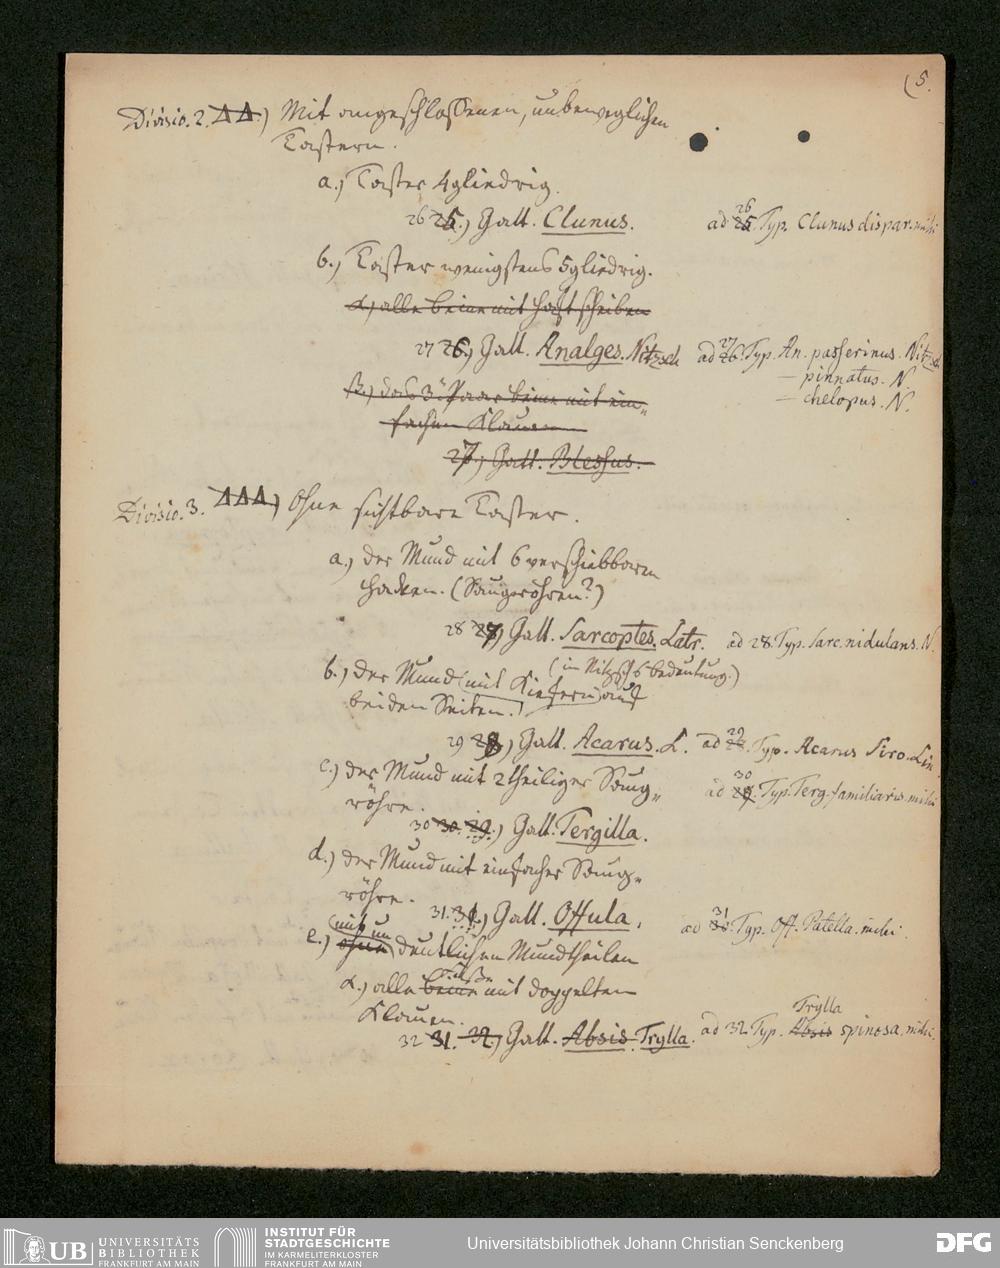 (5.
Divisio. 2. ΔΔ) Mit angeschlossenen, unbeweglichen
Tastern.
a.) Taster 4gliedrig.
26 25.) Gatt. Clunus. ad 26 25. Typ. Clunus dispar. mihi
b.) Taster wenigstens 5gliedrig.
α) alle Beine mit Haftscheiben
27 26.) Gatt. Analges. Nitzsch ad 27 26. Typ. An. passerinus. Nitzsch
— pinnatus. N.
— chelopus. N.
β.) das 3te Paar Beine mit ein-
fachen Klauen
27.) Gatt. Blessus.
Divisio. 3. ΔΔΔ) Ohne sichtbare Taster.
a.) der Mund mit 6 verschiebbaren
Hacken. (Saugröhren?)
28 27) Gatt. Sarcoptes. Latr. ad 28. Typ. Sarc. nidulans. N.
(in Nitzsch's Bedeutung.)
b.) der Mund (mit Kiefern) auf
beiden Seiten.
29 28) Gatt. Acarus. L. ad 29 28. Typ. Acarus Siro. Lin.
c.) der Mund mit 2theiliger Saug-
röhre.
30 30. 29.) Gatt. Tergilla. ad 30 29. Typ. Terg. familiaris mihi
d.) der Mund mit einfacher Saug-
röhre.
31. 31.) Gatt. Offula. ad 31 30. Typ. Off. Patella. mihi.
e.) (mit un ohne) deutlichen Mundtheilen
α.) alle Füße Beine mit doppelten
Klauen.
32 31. 32.) Gatt. Absis. Trylla. ad 32. Typ. Trylla Absis spinosa. mihi.
UB UNIVERSITÄTS
BIBLIOTHEK
FRANKFURT AM MAIN
INSTITUT FÜR
STADTGESCHICHTE
IM KARMELITERKLOSTER
FRANKFURT AM MAIN
Universitätsbibliothek Johann Christian Senckenberg
DFG